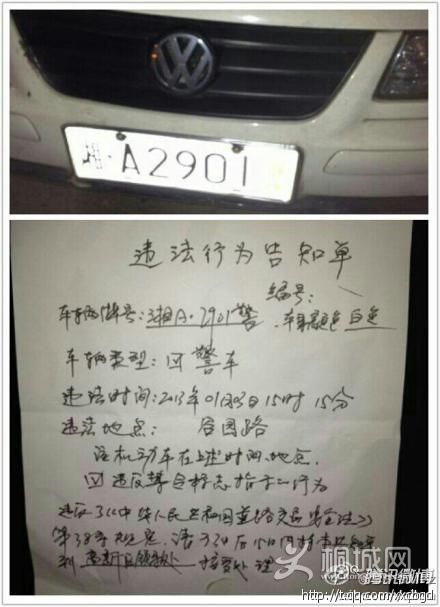 湘·A2901
违法行为告知单
编号:
车辆牌号:湘A·2901警 .车身颜色 白色
车辆类型: 警车
违法时间:2013年01月03日15时15分
违法地点: 谷园路
该机动车在上述时间、地点,
违反禁令标志指示行为
违反了《中华人民共和国道路交通安全法》
第38条规定,请于24后15日内持本告知单
到 接受处理
桐城网
腾讯微博
http://t.qq.com/xxcbgd